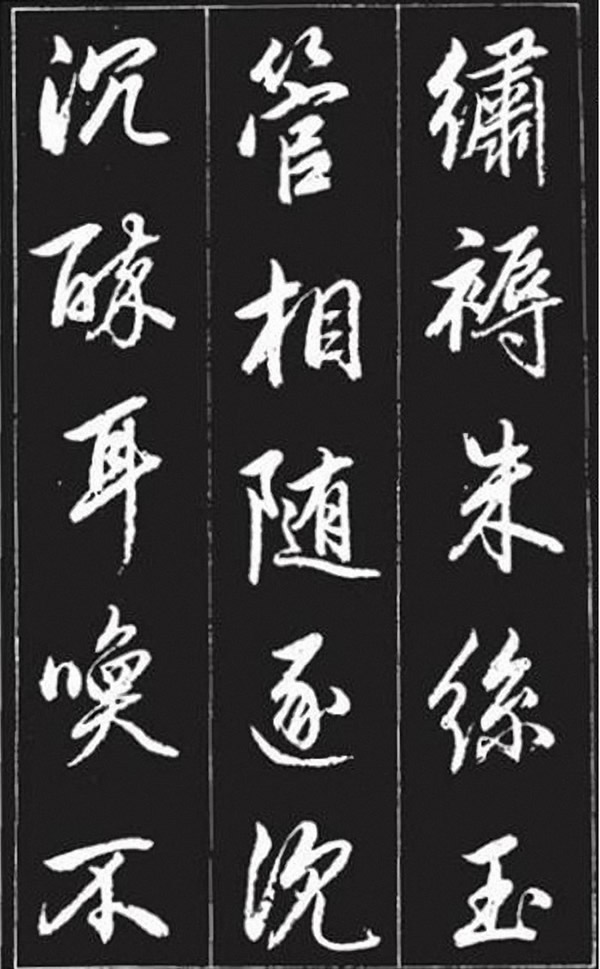 繡褥朱絲玉
管相随逐沉
沉酥耳喚不